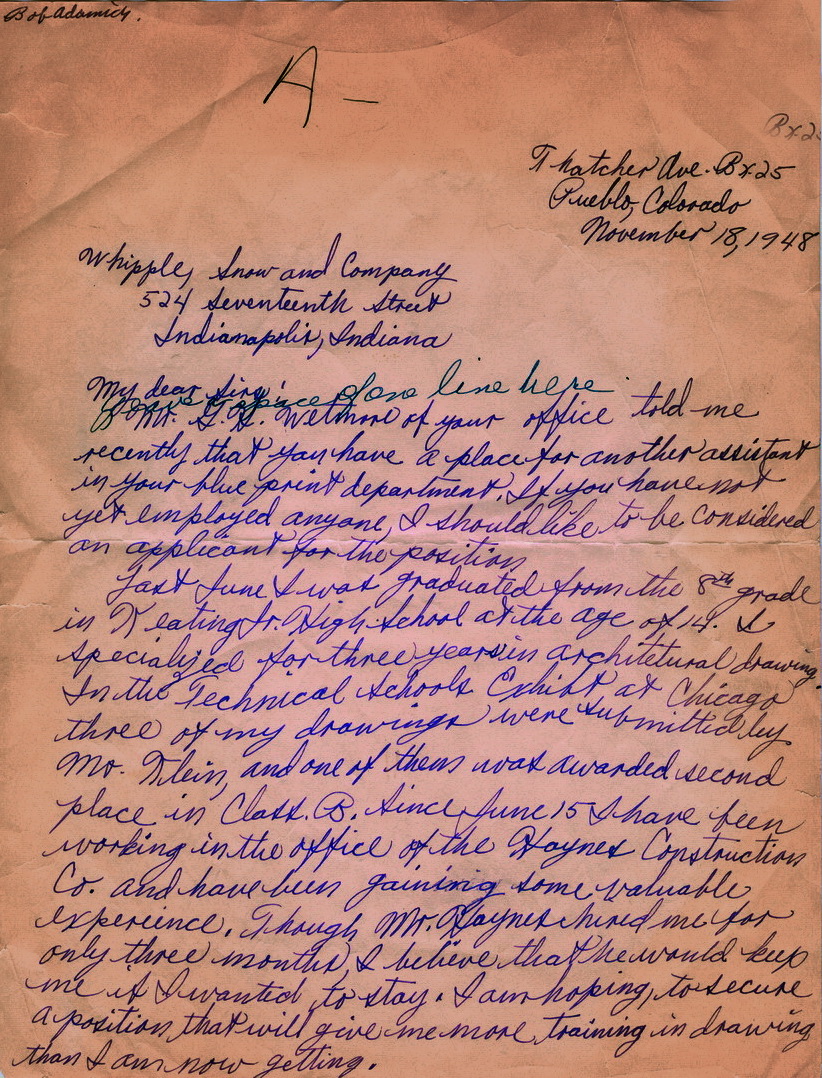 Bob Adamich.
A -
Bx 25
Thatcher Ave. Bx 25
Pueblo, Colorado
November 18, 1948
Whipple, Snow and Company
524 Seventeenth Street
Indianapolis, Indiana
My dear Sirs:
Leave a space of one line here
Mr. G. H. Wetmore of your office told me
recently that you have a place for another assistant
in your blue print department. If you have not
yet employed anyone, I should like to be considered
an applicant for the position
Last June I was graduated from the 8th grade
in Keating Jr. High School at the age of 14. I
specialized for three years in architetural drawing.
In the Technical Schools Exhibt at Chicago
three of my drawings were submitted by
Mr. Klein, and one of them was awarded second
place in Class. B. Since June 15 I have been
working in the office of the Haynes Construction
Co. and have been gaining some valuable
expereince. Though Mr. Haynes hired me for
only three months, I believe that he would keep
me if I wanted to stay. I am hoping to secure
a position that will give me more training in drawing
than I am now getting.